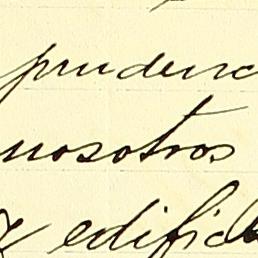 prudenc
nosotros
y edific